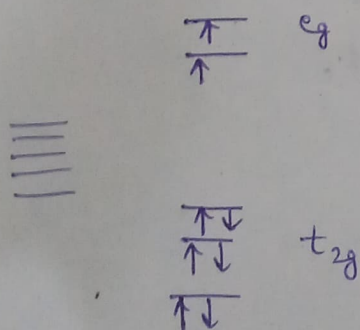 ↑ e_g
↑
↑↓
↑↓ t_2g
↑↓